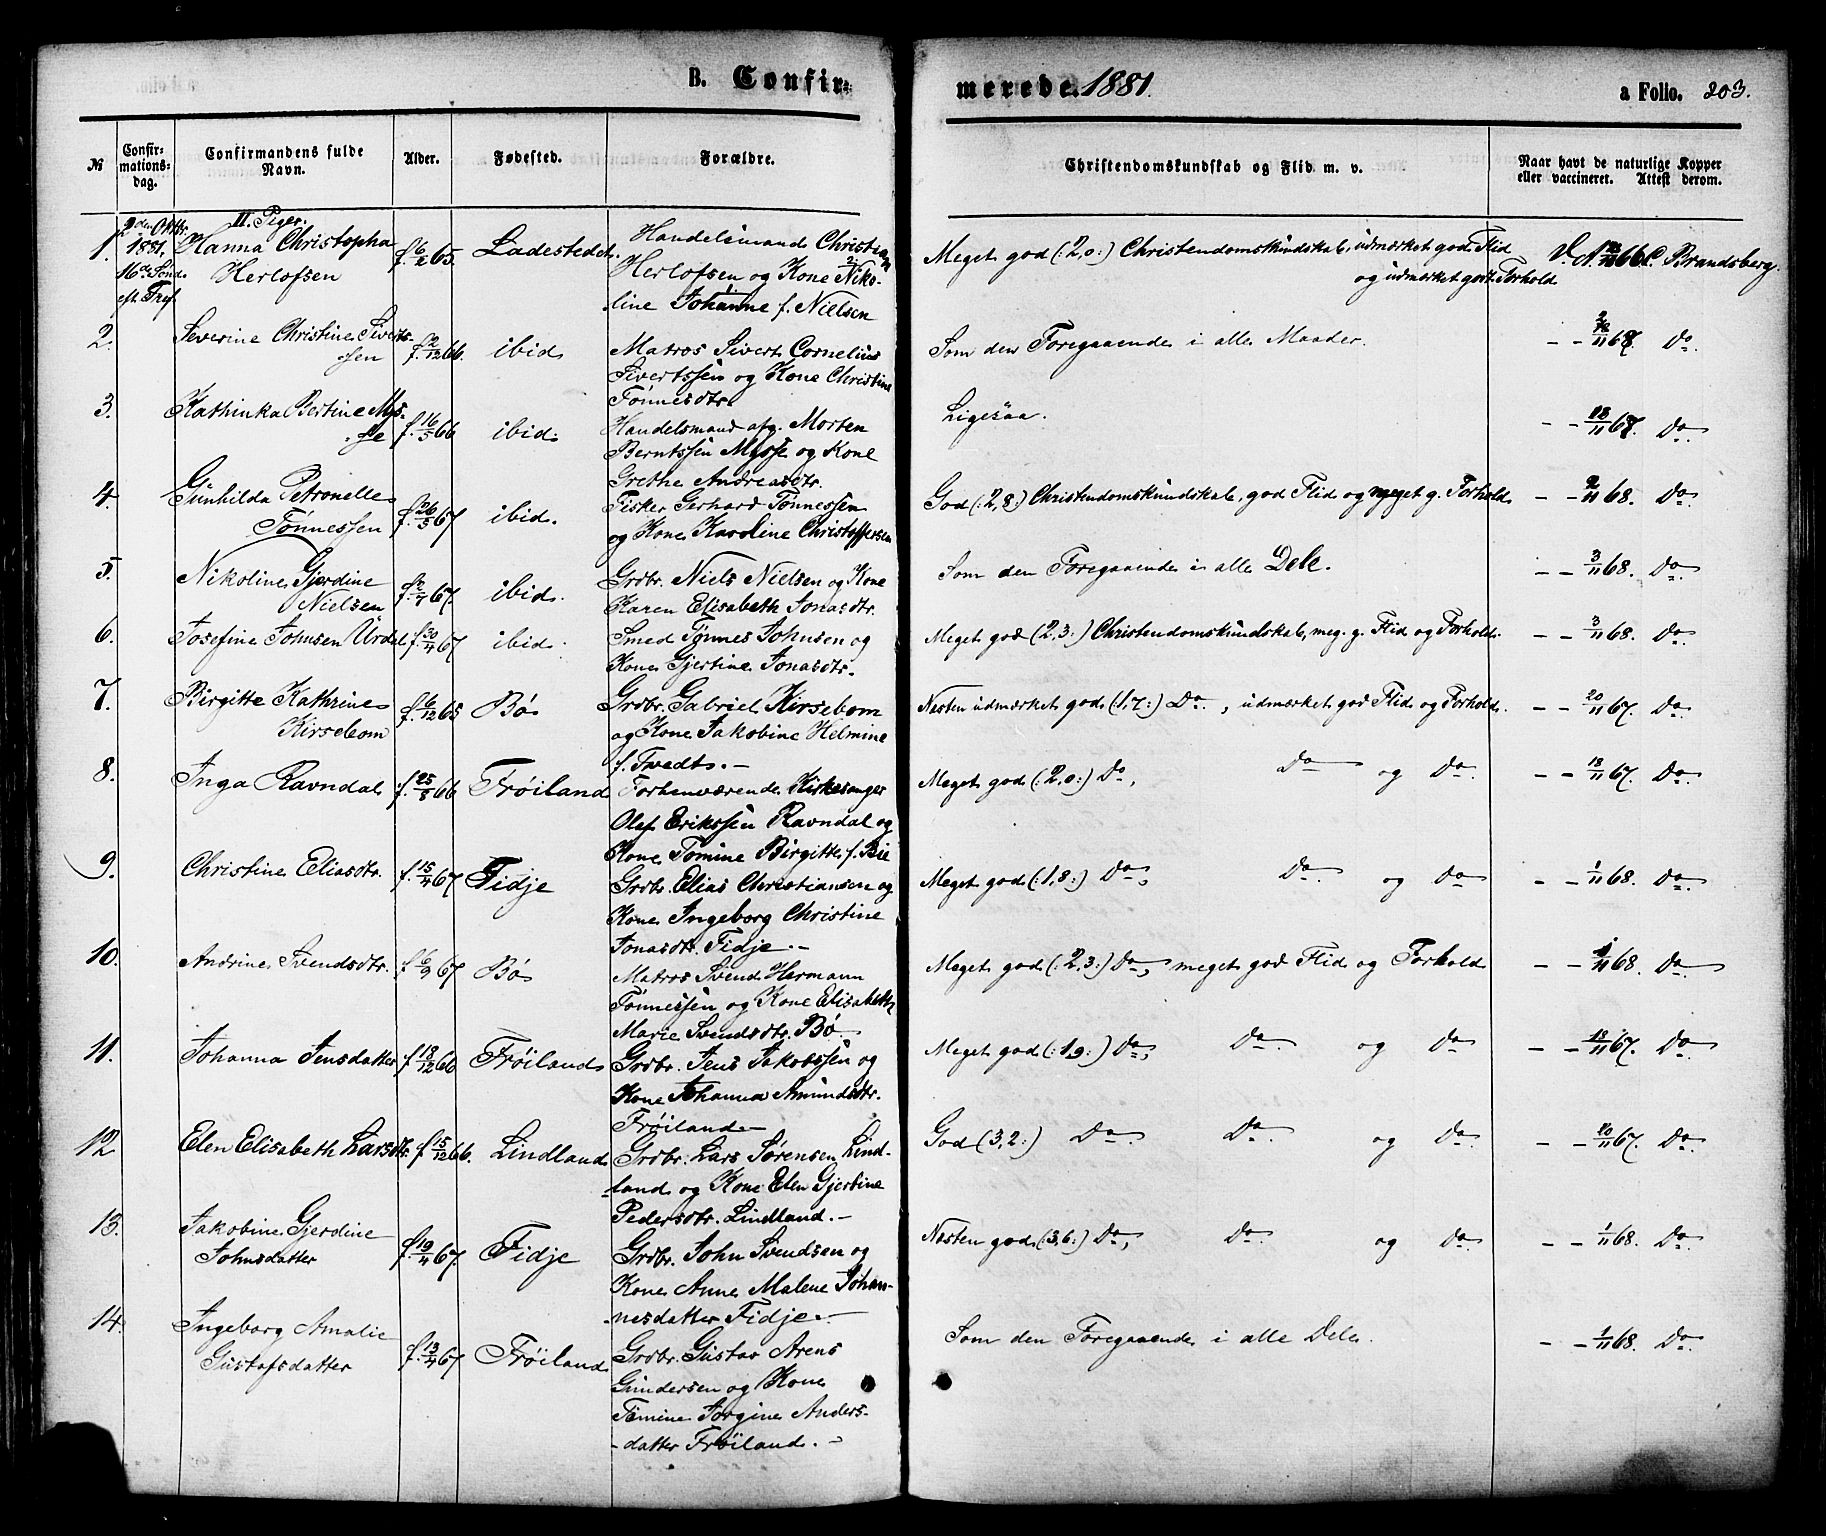 B. Confirmerede 1881. a Folio. 203.
№ Confirmationsdag. Confirmandens fulde Navn. Alder. Fødested. Forældre. Christendomskundskab og Flid m. v. Naar havt de naturlige Kopper eller vaccineret. Attest derom.
2den Oktbr. 1881. 16de Sønd. eft. Tref.
II. Piger.
1. Hanna Christopha Herlofsen f. 6/2 65. Ladestedet. Handelsmand Christian
Herlofsen og Kone Nikoline
Johanne f. Nielsen
Meget god (:2,0:) Christendomskundskab, udmærket god Flid
og udmærket godt Forhold. 66 C. Brandsberg.
2. Severine Christine Sivertssen f. 2/12 66. ibid Matros Sivert Cornelius
Sivertssen og Kone Christine
Tønnesdtr.
Som den Foregaaende i alle Maader. - - /11 67. Do.
3. Kathinka Bertine Mysse f. 16/5 66 ibid. Handelsmand afg. Morten
Berntssen Mysse og Kone
Grethe Andreasdtr.
Ligesaa. - - 18/11 67. Do.
4. Gunhilda Petronelle Tønnessen f. 26/5 67 ibid. Fisker Gerhard Tønnessen
og Kone Karoline Christoffersen
God (:2,8:) Christendomskundskab, god Flid og meget g. Forhold - - 2/11 68. Do.
5. Nikoline Gjerdine Nielsen 67. ibid. Grdbr. Niels Nielsen og Kone
Karen Elisabeth Jonasdtr.
Som den Foregaaende i alle Dele. - - 3/11 68. Do.
6. Josefine Johnsen Urdal f. 30/4 67 ibid. Smed Tønnes Johnsen og
Kone Gjertine Jonasdtr.
Meget god (2,3:) Christendomskundskab, meg. g. Flid og Forhold. - - 3/11 68. Do.
7. Birgitte Kathrine Kirsebom f. 6/12 65 Bø Grdbr. Gabriel Kirsebom
og Kone Jakobine Helmine
f. Tvedt. -
Næsten udmærket god (1,7:) Do., udmærket god Flid og Forhold. - - 20/11 67. Do.
8. Inga Ravndal f. 25/8 66 Frøiland Forhenværende Kirkesanger
Olaf Erikssen Ravndal og
Kone Tomine Birgitte f. Bie
Meget god (:2,0:) Do, Do og Do. - - 18/11 67. Do.
9. Christine Eliasdtr. f. 15/4 67 Fidje Grdbr. Elias Christiansen og
Kone Ingeborg Christine
Jonasdtr. Fidje. -
Meget god (:1,8:) Do, Do. og Do - - 1/11 68. Do.
10. Andrine Svendsdtr. f. 6/9 67 Bø Matros Svend Hermann
Tønnessen og Kone Elisabeth
Marie Svendsdtr. Bø
Meget god (:2,3:) Do, meget god Flid og Forhold - - 1/11 68. Do.
11. Johanna Jensdatter f. 18/12 66 Frøiland Grdbr. Jens Jakobssen og
Kone Johanna Amundsdtr.
Frøiland
Meget god (:1,9:) Do, Do. og Do - - 18/11 67. Do
12 Elen Elisabeth Larsdtr. f. 15/12 66. Lindland Grdbr. Lars Sørensen Lindland
og Kone Elen Gjertine
Pedersdtr. Lindland. -
God (3,2:) Do. Do. og Do - - 20/11 67. Do.
13. Jakobine Gjerdine Johnsdatter f. 19/4 67. Fidje Grdbr. John Svendsen og
Kone Anne Malene Johannesdatter
Fidje. -
Næsten god (:3,6:) Do, Do. og Do. - - 1/11 68. Do.
14. Ingeborg Amalie Gustafsdatter f. 13/4 67. Frøiland Grdbr. Gustav Arens
Gundersen og Kone
Tomine Jorgine Andersdatter
Frøiland. -
Som den Foregaaende i alle Dele. - - 1/11 68. Do.